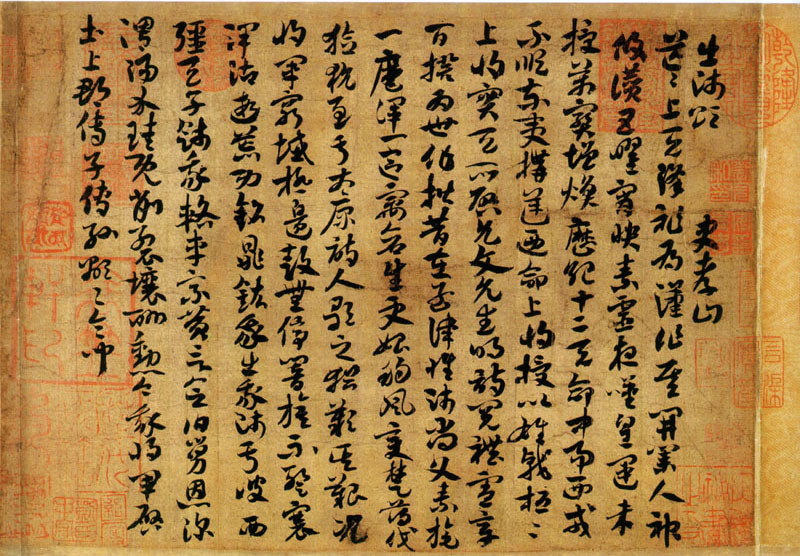 出師頌 史孝山
茫茫上天降祚為漢作基開業人神
攸讚五曜霄映素靈夜歎皇運未
授萬寶增煥歷紀十二天命中易西戎
不順東夷構逆乃命上將授以雄戟桓桓
上將實天所啟允文允武明詩閱禮憲章
百揆為世作楷昔在孟津惟師尚父素旄
一麾渾一區宇蒼生更始朔風變楚薄伐
獫狁至于太原詩人歌之猶歎其艱況
將軍窮城極邊鼓無停響旗不蹔褰
澤沾遐荒功銘鼎鉉我出我師于彼西
疆天子餞我輅車乘黃言念伯舅恩深
渭陽介珪既削裂壤酬勳今我將軍啟
土上郡傳子傳孫顯顯令問